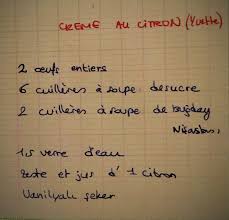 CREME AU CITRON (Yvette)
2 œufs entiers
6 cuillères à soupe de sucre
2 cuillères à soupe de buğday
Nişastası
1,5 verre d'eau
zeste et jus d'1 citron
Vanilyalı şeker